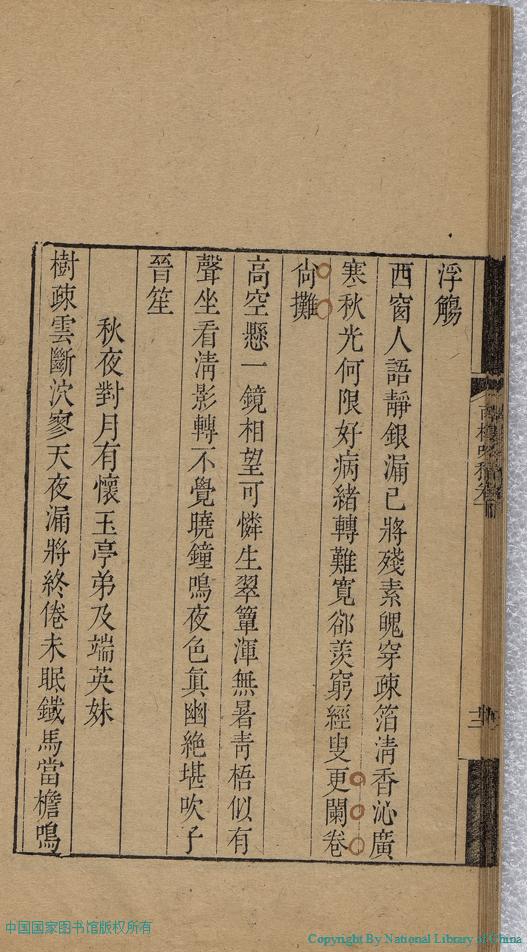 浮觴
西窗人語靜銀漏已將殘素魄穿疎箔清香沁廣
寒秋光何限好病緒轉難寬卻羨窮經叟更闌卷
尙攤
高空懸一鏡相望可憐生翠簟渾無暑靑梧似有
聲坐看淸影轉不覺曉鐘鳴夜色眞幽絕堪吹子
晉笙
秋夜對月有懷玉亭弟及端英妹
樹疎雲斷泬寥天夜漏將終倦未眠鐵馬當檐鳴
中国国家图书馆版权所有
Copyright By National Library of China